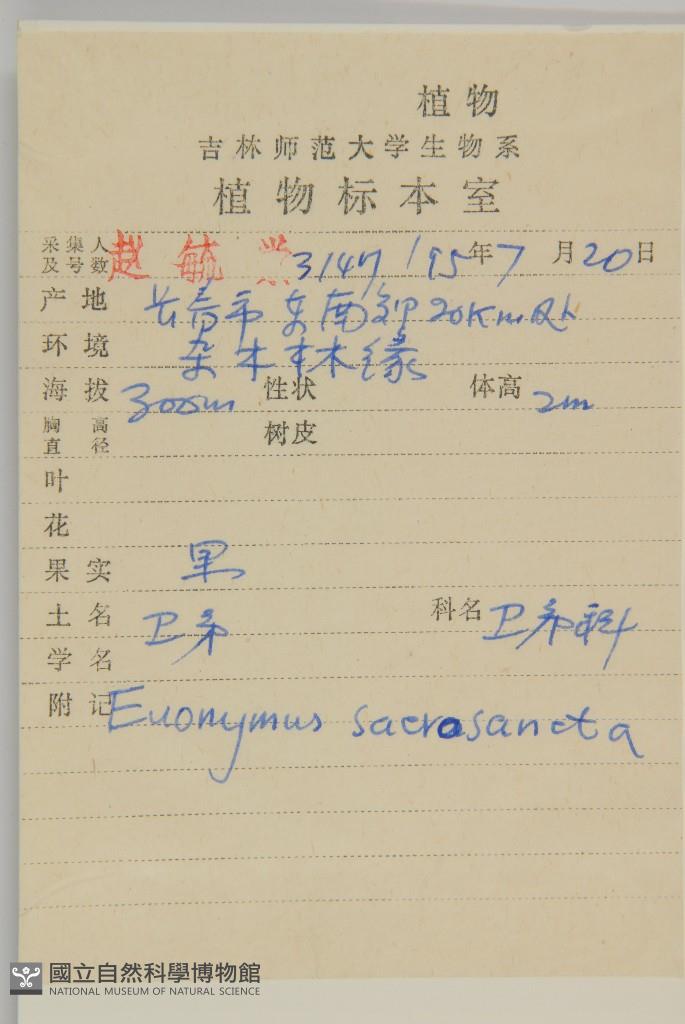 植物
吉林师范大学生物系
植物标本室
采集人
及号数 赵毓 3147 195年7月20日
产地 长春市东南郊20Km处
环境 杂木林缘
海拔 300m 性状 体高 2m
胸高
直径 树皮
叶
花
果实 果
土名 卫矛 科名 卫矛科
学名
附记 Euonymus sacrosancta
國立自然科學博物館
NATIONAL MUSEUM OF NATURAL SCIENCE